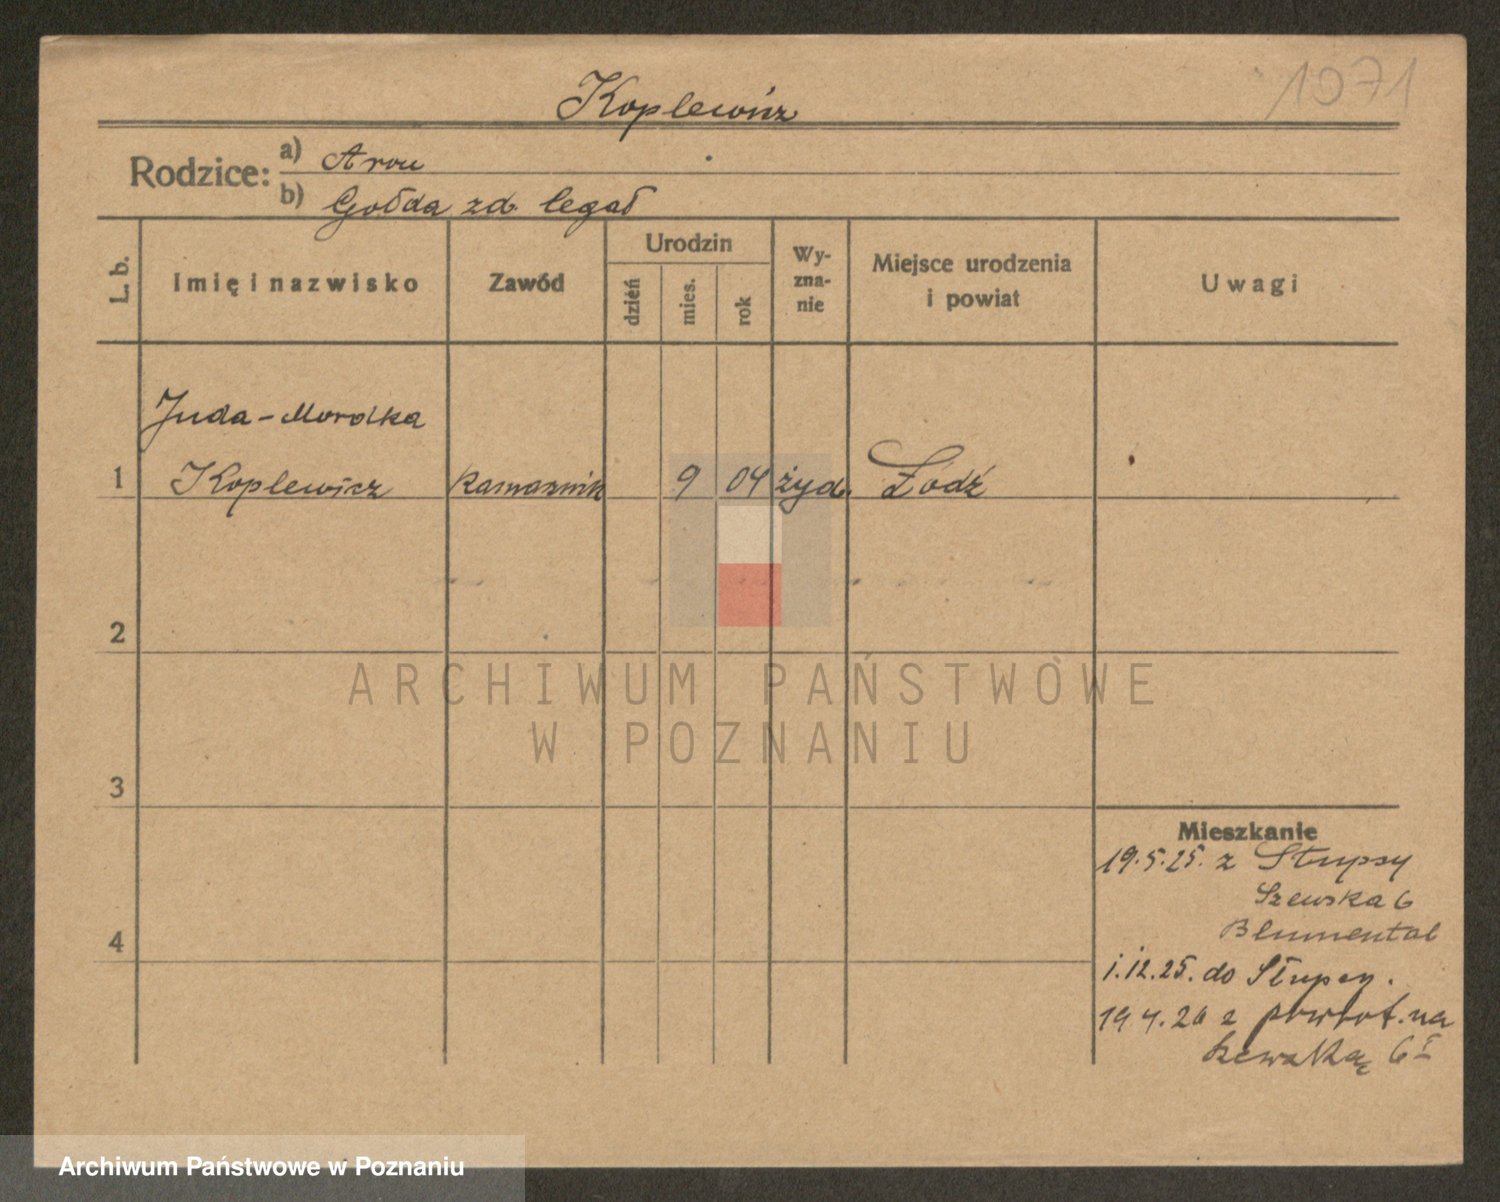 1071
Koplewicz
Rodzice: a) Aron
b) Gołda zd. Legał
L. b.
Imię i nazwisko
Zawód
Urodzin
dzień
mies.
rok
Wy-
zna-
nie
Miejsce urodzenia
i powiat
Uwagi
Juda-Mordka
1 Koplewicz kamasznik 9 04 żyd. Łódź
2
3
4
Mieszkanie
19.5.25. z Słupsy
Szewska 6
Blumental
1.12.25. do Słupcy.
19 4.26 z powrot. na
Szewską 6 I
ARCHIWUM PAŃSTWOWE
W POZNANIU
Archiwum Państwowe w Poznaniu